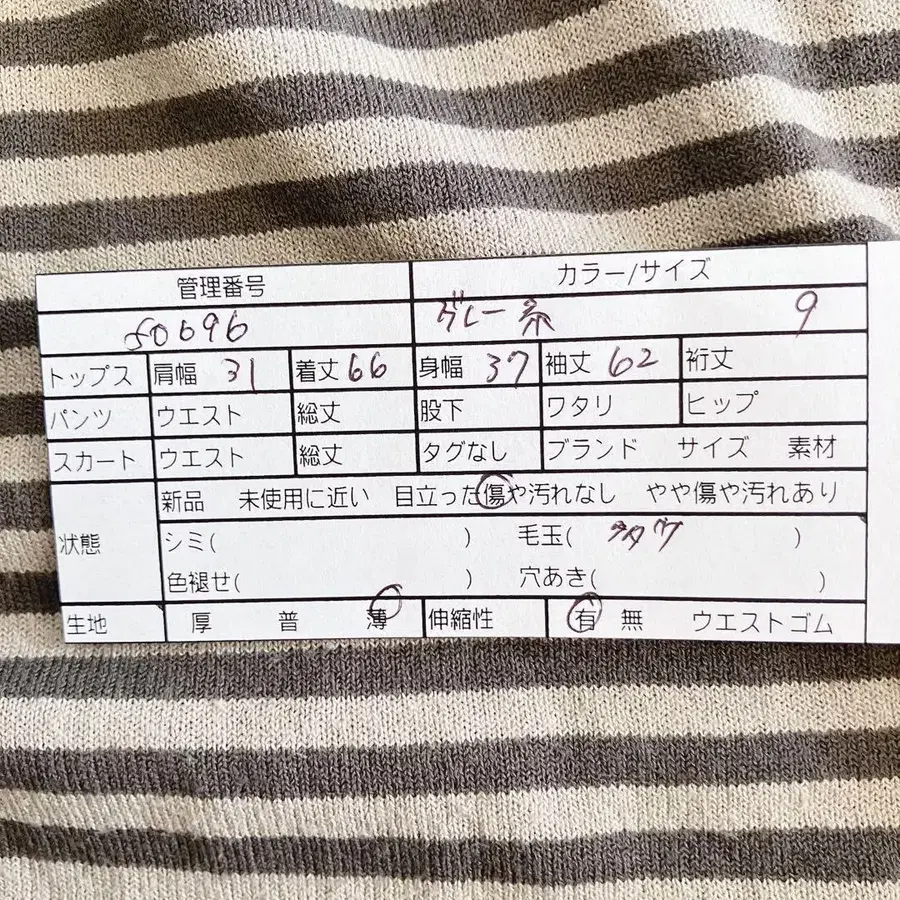 管理番号 カラー/サイズ
50696 グレー系 9
トップス 肩幅 31 着丈 66 身幅 37 袖丈 62 裄丈
パンツ ウエスト 総丈 股下 ワタリ ヒップ
スカート ウエスト 総丈 タグなし ブランド サイズ 素材
状態 新品 未使用に近い 目立った傷や汚れなし やや傷や汚れあり
シミ( ) 毛玉( )
色褪せ( ) 穴あき( )
生地 厚 普 薄 伸縮性 有 無 ウエストゴム